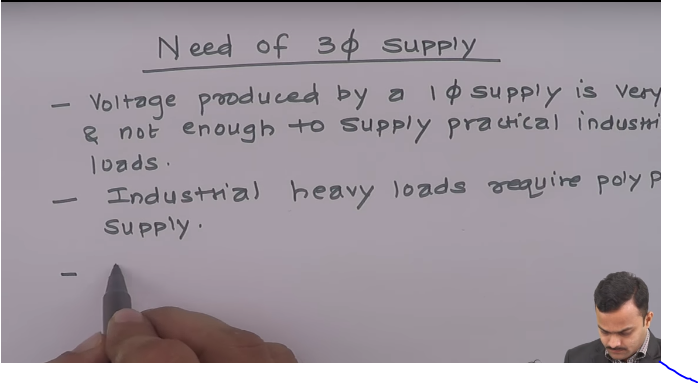 Need of 3ϕ supply
- Voltage produced by a 1ϕ supply is very
& not enough to supply practical industri
loads.
- Industrial heavy loads require poly p
supply.
-